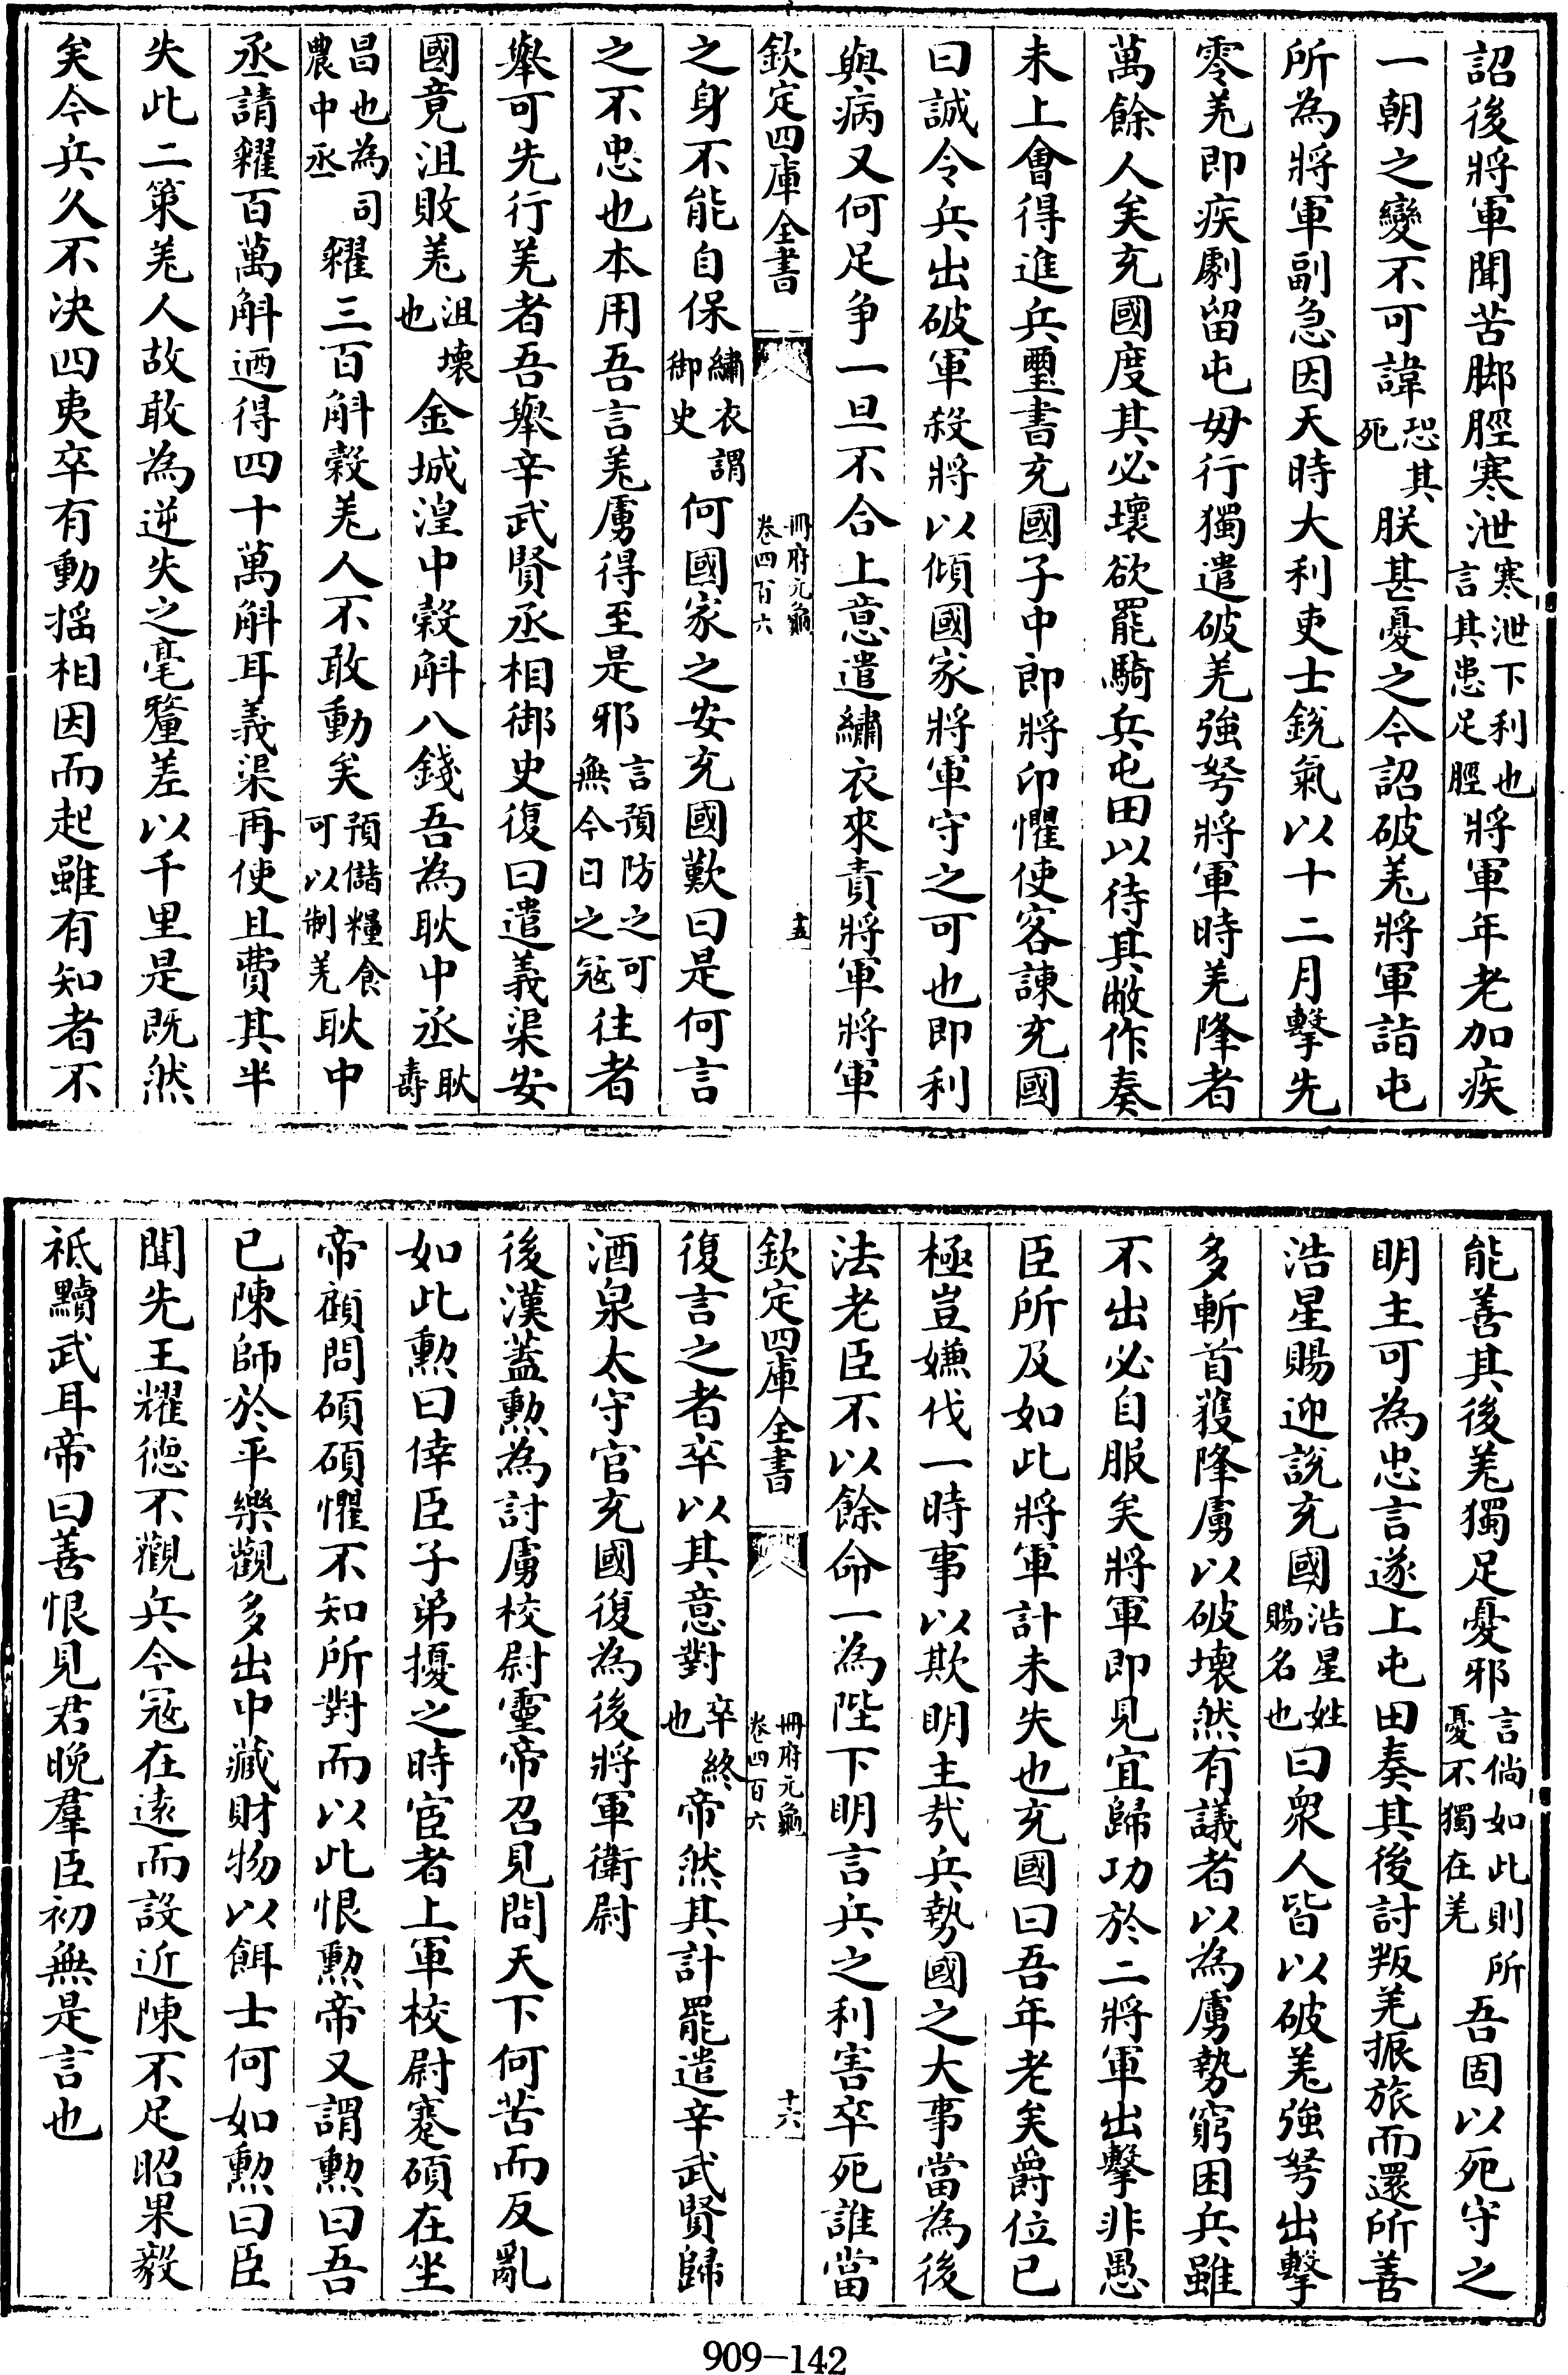 詔後將軍聞苦脚脛寒泄寒泄下利也言其患足脛將軍年老加疾
一朝之變不可諱恐其死朕甚憂之今詔破羌將軍詣屯
所為將軍副急因天時大利吏士銳氣以十二月擊先
零羌即疾劇留屯毋行獨遣破羌強弩將軍時羌降者
萬餘人矣充國度其必壞欲罷騎兵屯田以待其敝作奏
未上會得進兵璽書充國子中郎將卬懼使客諫充國
曰誠令兵出破軍殺將以傾國家將軍守之可也即利
與病又何足争一旦不合上意遣繡衣來責將軍將軍
欽定四庫全書 冊府元龜卷四百六 十五
之身不能自保繡衣謂御史何國家之安充國歎曰是何言
之不忠也本用吾言羌虜得至是邪言預防之可無今日之冦往者
舉可先行羌者吾舉辛武賢丞相御史復曰遣義渠安
國竟沮敗羌沮壞也金城湟中穀斛八錢吾為耿中丞耿壽
昌也為司農中丞糴三百斛穀羌人不敢動矣預儲糧食可以制羌耿中
丞請糴百萬斛迺得四十萬斛耳義渠再使且費其半
失此二䇿羌人故敢為逆失之毫釐差以千里是既然
矣今兵久不决四夷卒有動揺相因而起雖有知者不
能善其後羌獨足憂邪言倘如此則所憂不獨在羌吾固以死守之
明主可為忠言遂上屯田奏其後討叛羌振旅而還所善
浩星賜迎說充國浩星姓賜名也曰衆人皆以破羌強弩出擊
多斬首獲降虜以破壞然有議者以為虜勢窮困兵雖
不出必自服矣將軍即見宜歸功於二將軍出擊非愚
臣所及如此將軍計未失也充國曰吾年老矣爵位已
極豈嫌伐一時事以欺明主哉兵勢國之大事當為後
法老臣不以餘命一為陛下明言兵之利害卒死誰當
欽定四庫全書 冊府元龜卷四百六 十六
復言之者卒以其意對卒終也帝然其計罷遣辛武賢歸
酒泉太守官充國復為後將軍衛尉
後漢蓋勲為討虜校尉靈帝召見問天下何苦而反亂
如此勲曰倖臣子弟擾之時宦者上軍校尉蹇碩在坐
帝顧問碩碩懼不知所對而以此恨勲帝又謂勲曰吾
已陳師於平樂觀多出中藏財物以餌士何如勲曰臣
聞先王耀徳不觀兵今冦在逺而設近陳不足昭果毅
祗黷武耳帝曰善恨見君晚羣臣初無是言也
909-142